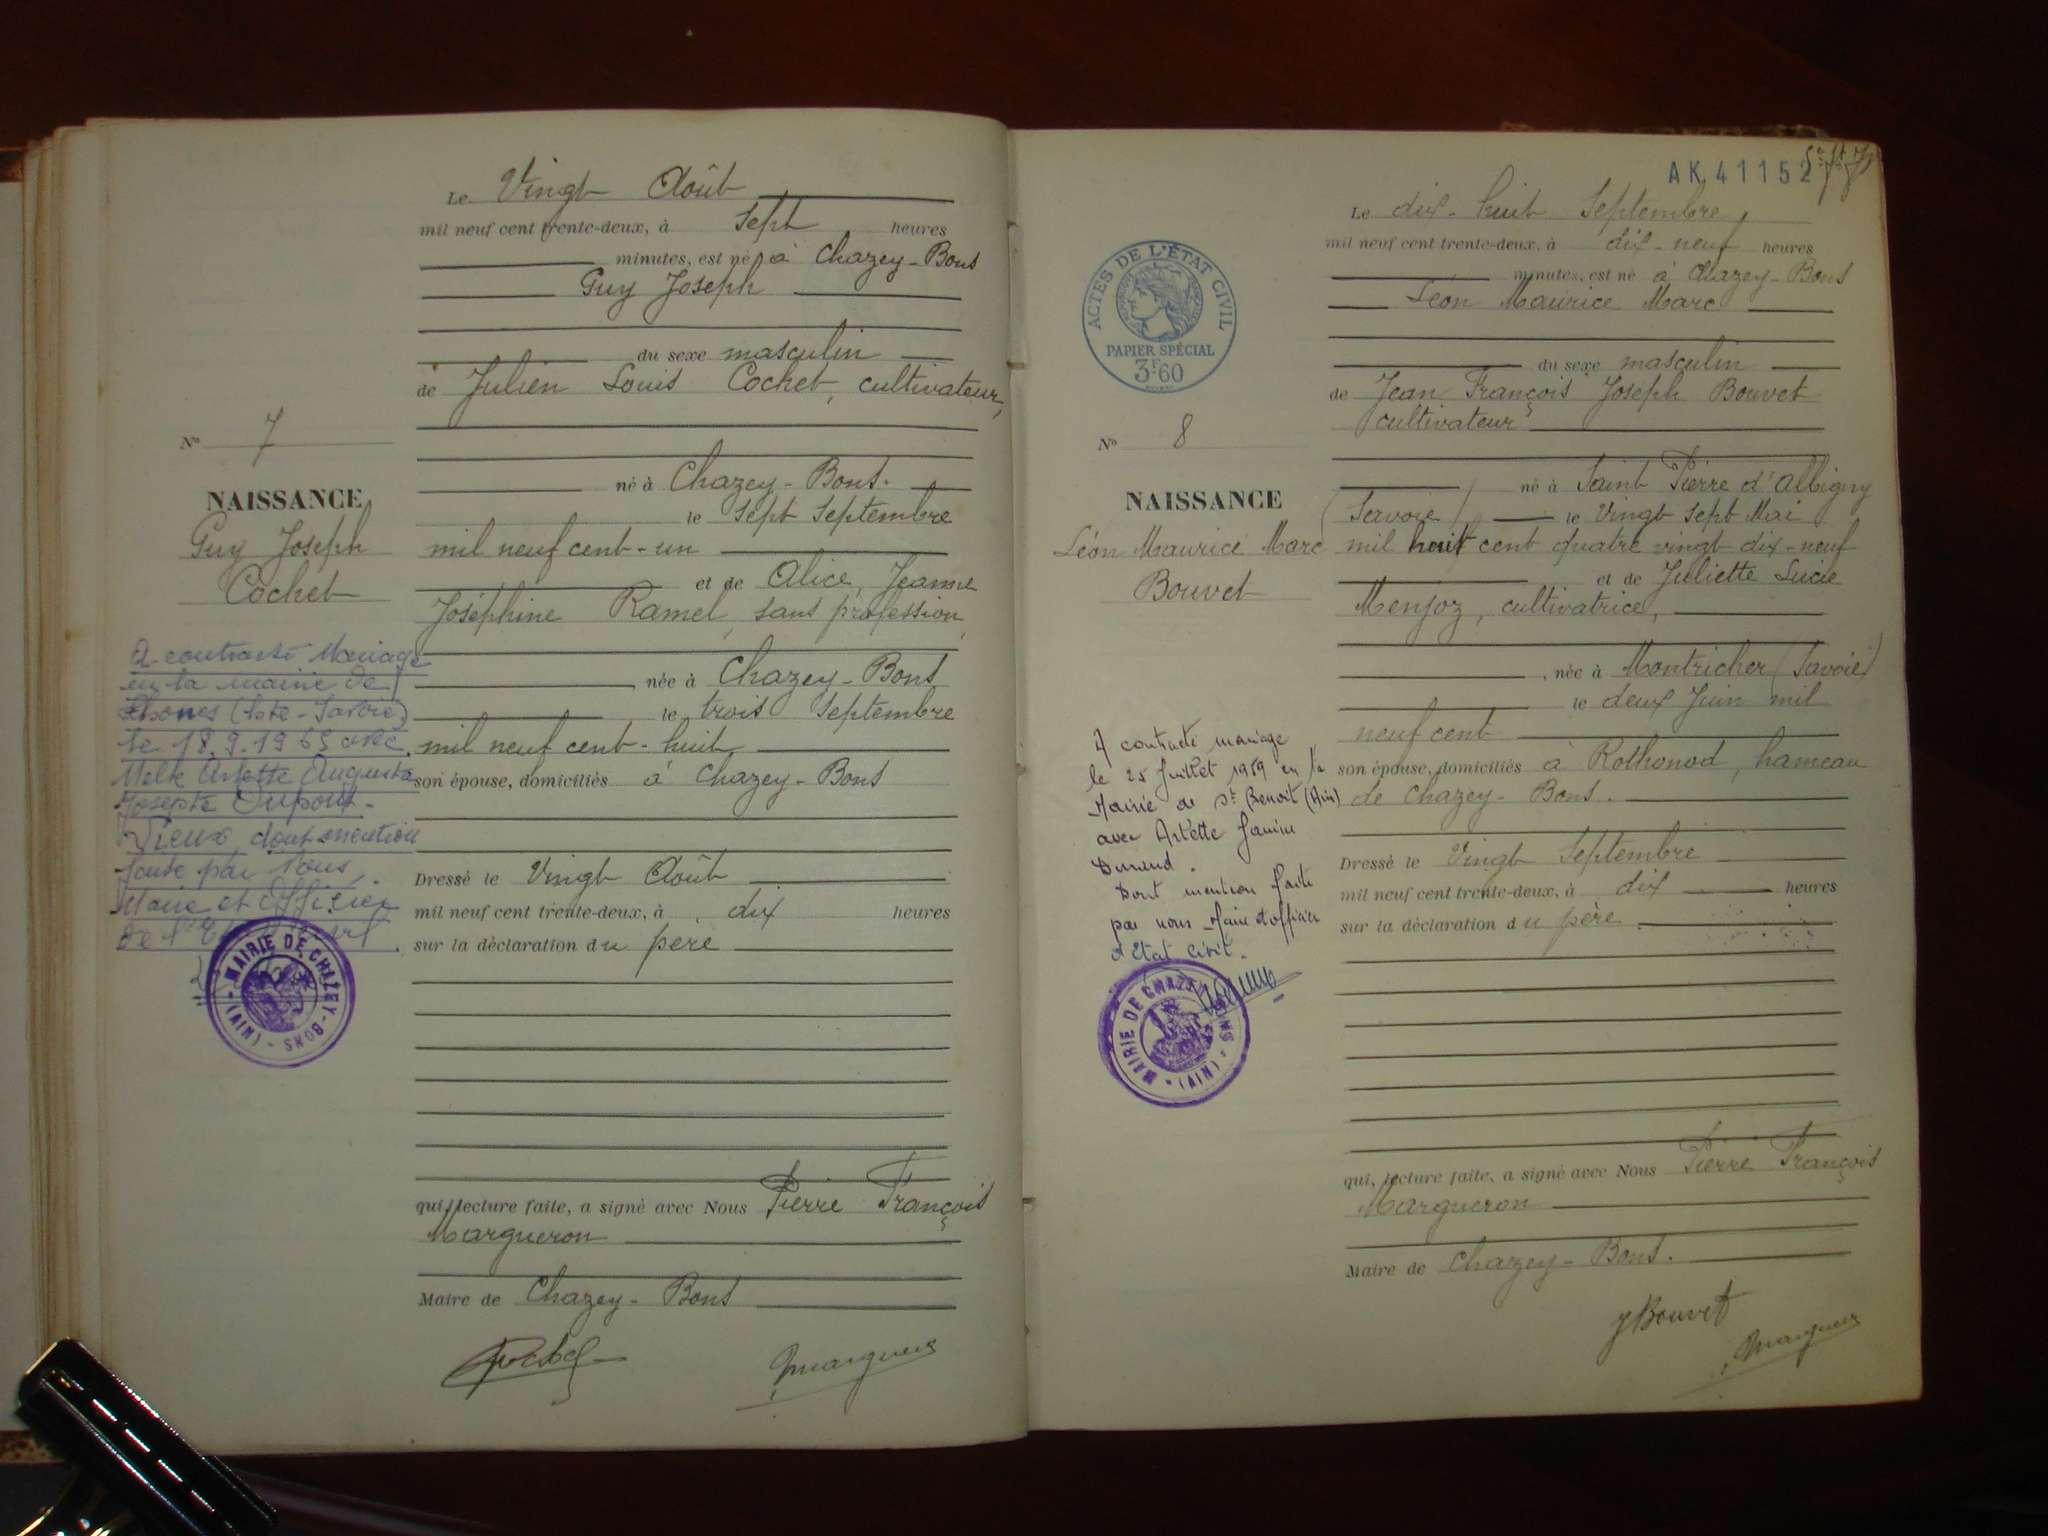 Le Vingt Août
mil neuf cent trente-deux, à sept heures
minutes, est né à Chazey-Bons
Guy Joseph
du sexe masculin
de Julien Louis Cochet, cultivateur,
né à Chazey-Bons.
le sept Septembre
mil neuf cent-un
et de Alice, Jeanne
Joséphine Ramel, sans profession,
née à Chazey-Bons
le trois Septembre
mil neuf cent-huit
son épouse, domiciliés à Chazey-Bons
Dressé le Vingt Août
mil neuf cent trente-deux, à dix heures
sur la déclaration du père
qui, lecture faite, a signé avec Nous Pierre François
Margueron
Maire de Chazey-Bons
No 7
NAISSANCE
Guy Joseph
Cochet
A contracté Mariage
en la mairie de
(Hte-Savoie)
le 18.9.19 avec
Melle Arlette Augusta
Josepte Dupont-
Vieux dont mention
faite par Nous,
Maire et Officier
de l'
MAIRIE DE CHAZEY-BONS - (AIN)
Margueron
AK 41152
Le dix-huit Septembre
mil neuf cent trente-deux, à dix-neuf heures
minutes, est né à Chazey-Bons
Léon Maurice Marc
du sexe masculin
de Jean François Joseph Bouvet
cultivateur
né à Saint Pierre d'Albigny
(Savoie) le Vingt sept Mai
mil huit cent quatre vingt dix-neuf
et de Juliette Lucie
Menjoz, cultivatrice,
née à Montricher (Savoie)
le deux Juin mil
neuf cent
son épouse, domiciliés à Rothonod, hameau
de Chazey-Bons.
Dressé le Vingt Septembre
mil neuf cent trente-deux, à dix heures
sur la déclaration du père.
qui, lecture faite, a signé avec Nous Pierre François
Margueron
Maire de Chazey-Bons.
JBouvet
Margueron
ACTES DE L'ÉTAT CIVIL
PAPIER SPÉCIAL
3F60
No 8
NAISSANCE
Léon Maurice Marc
Bouvet
A contracté mariage
le 25 Juillet 1959 en la
Mairie de St Benoit (Ain)
avec Arlette Janine
Durand.
Dont mention faite
par nous Maire et officier
d'Etat Civil.
MAIRIE DE CHAZEY-BONS - (AIN)